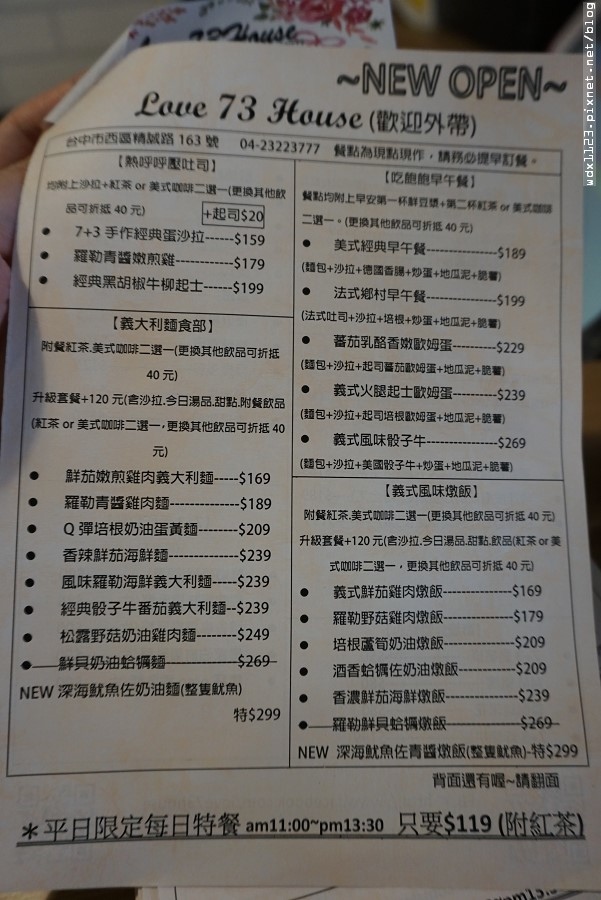 73 House
~NEW OPEN~
Love 73 House (歡迎外帶)
台中市西區精誠路 163 號 04-23223777 餐點為現點現作，請務必提早訂餐。
【熱呼呼壓吐司】
均附上沙拉+紅茶 or 美式咖啡二選一(更換其他飲
品可折抵 40 元) +起司$20
● 7+3 手作經典蛋沙拉------$159
● 羅勒青醬嫩煎雞------$179
● 經典黑胡椒牛柳起士------$199
【義大利麵食部】
附餐紅茶.美式咖啡二選一(更換其他飲品可折抵
40 元)
升級套餐+120 元(含沙拉.今日湯品.甜點.附餐飲品
(紅茶 or 美式咖啡二選一，更換其他飲品可折抵 40
元)
● 鮮茄嫩煎雞肉義大利麵-----$169
● 羅勒青醬雞肉麵-------$189
● Q 彈培根奶油蛋黃麵-------$209
● 香辣鮮茄海鮮麵-------$239
● 風味羅勒海鮮義大利麵-----$239
● 經典骰子牛番茄義大利麵--$239
● 松露野菇奶油雞肉麵-------$249
● 鮮貝奶油蛤蠣麵-------$269
NEW 深海魷魚佐奶油麵(整隻魷魚)
特$299
【吃飽飽早午餐】
餐點均附上早安第一杯鮮豆漿+第二杯紅茶 or 美式咖啡
二選一。(更換其他飲品可折抵 40 元)
● 美式經典早午餐-------$189
(麵包+沙拉+德國香腸+炒蛋+地瓜泥+脆薯)
● 法式鄉村早午餐-------$199
(法式吐司+沙拉+培根+炒蛋+地瓜泥+脆薯)
● 蕃茄乳酪香嫩歐姆蛋-------$229
(麵包+沙拉+起司蕃茄歐姆蛋+地瓜泥+脆薯)
● 義式火腿起士歐姆蛋-------$239
(麵包+沙拉+起司培根歐姆蛋+地瓜泥+脆薯)
● 義式風味骰子牛-------$269
(麵包+沙拉+美國骰子牛+炒蛋+地瓜泥+脆薯)
【義式風味燉飯】
附餐紅茶.美式咖啡二選一(更換其他飲品可折抵 40 元)
升級套餐+120 元(含沙拉.今日湯品.甜點.飲品(紅茶 or 美
式咖啡二選一，更換其他飲品可折抵 40 元)
● 義式鮮茄雞肉燉飯-------$169
● 羅勒野菇雞肉燉飯-------$179
● 培根蘆筍奶油燉飯-------$209
● 酒香蛤蠣佐奶油燉飯-------$209
● 香濃鮮茄海鮮燉飯-------$239
● 羅勒鮮貝蛤蠣燉飯-------$269
NEW 深海魷魚佐青醬燉飯(整隻魷魚)-特$299
背面還有喔~請翻面
＊平日限定每日特餐 am11:00~pm13:30 只要$119 (附紅茶)
wdx1123.pixnet.net/blog